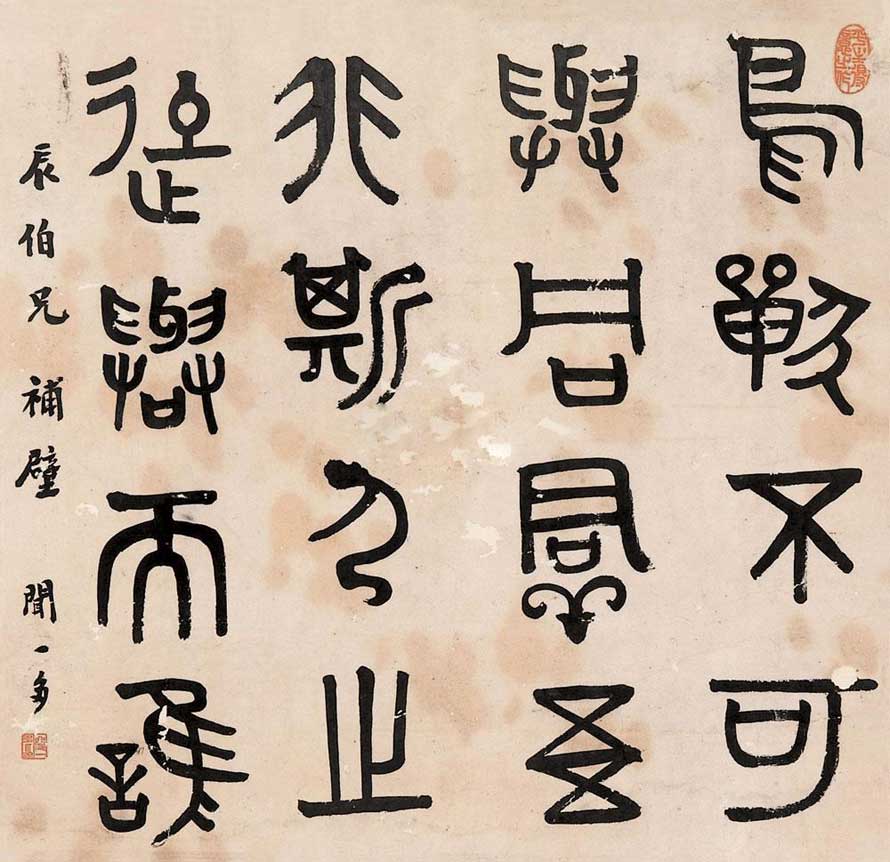 鳥獸不可
與同羣吾
非斯人之
徒與而誰
辰伯兄補壁 聞一多